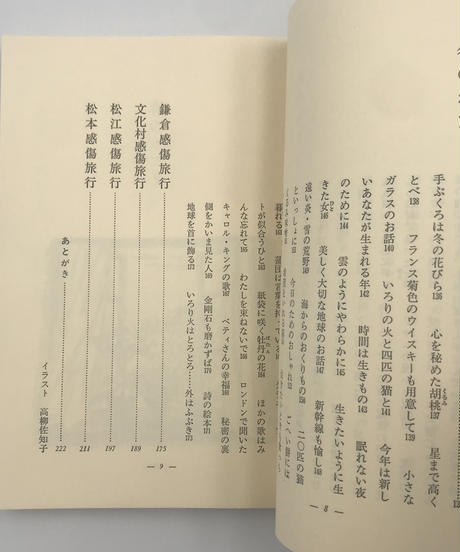 手ぶくろは冬の花びら136　心を秘めた胡桃137　星まで高く
とべ138　フランス菊色のウイスキーも用意して139　小さな
ガラスのお話140　いろりの火と四匹の猫と141　今年は新し
いあなたが生まれる年142　時間は生きもの143　眠れない夜
のために144　雲のようにやわらかに145　生きたいように生
きた女146　美しく大切な地球のお話147　新幹線も愉し148
遠い炎・雪の荒野149　海からのおくりもの　二〇匹の猫
といっしょに　今日のためのおしゃれ　ごへい餅には
— 8 —
暮れる
トが似合うひと　紙袋に咲く牡丹の花164　ほかの歌はみ
んな忘れて165　わたしを束ねないで166　ロンドンで聞いた
キャロル・キングの歌167　ベティさんの幸福168　秘密の裏
側をかいま見た人169　金剛石も磨かずば170　詩の絵本171
地球を首に飾る172　いろり火はとろとろ……外はふぶき173
鎌倉感傷旅行……175
文化村感傷旅行……189
松江感傷旅行……197
松本感傷旅行……211
あとがき……222
イラスト　高柳佐知子
— 9 —